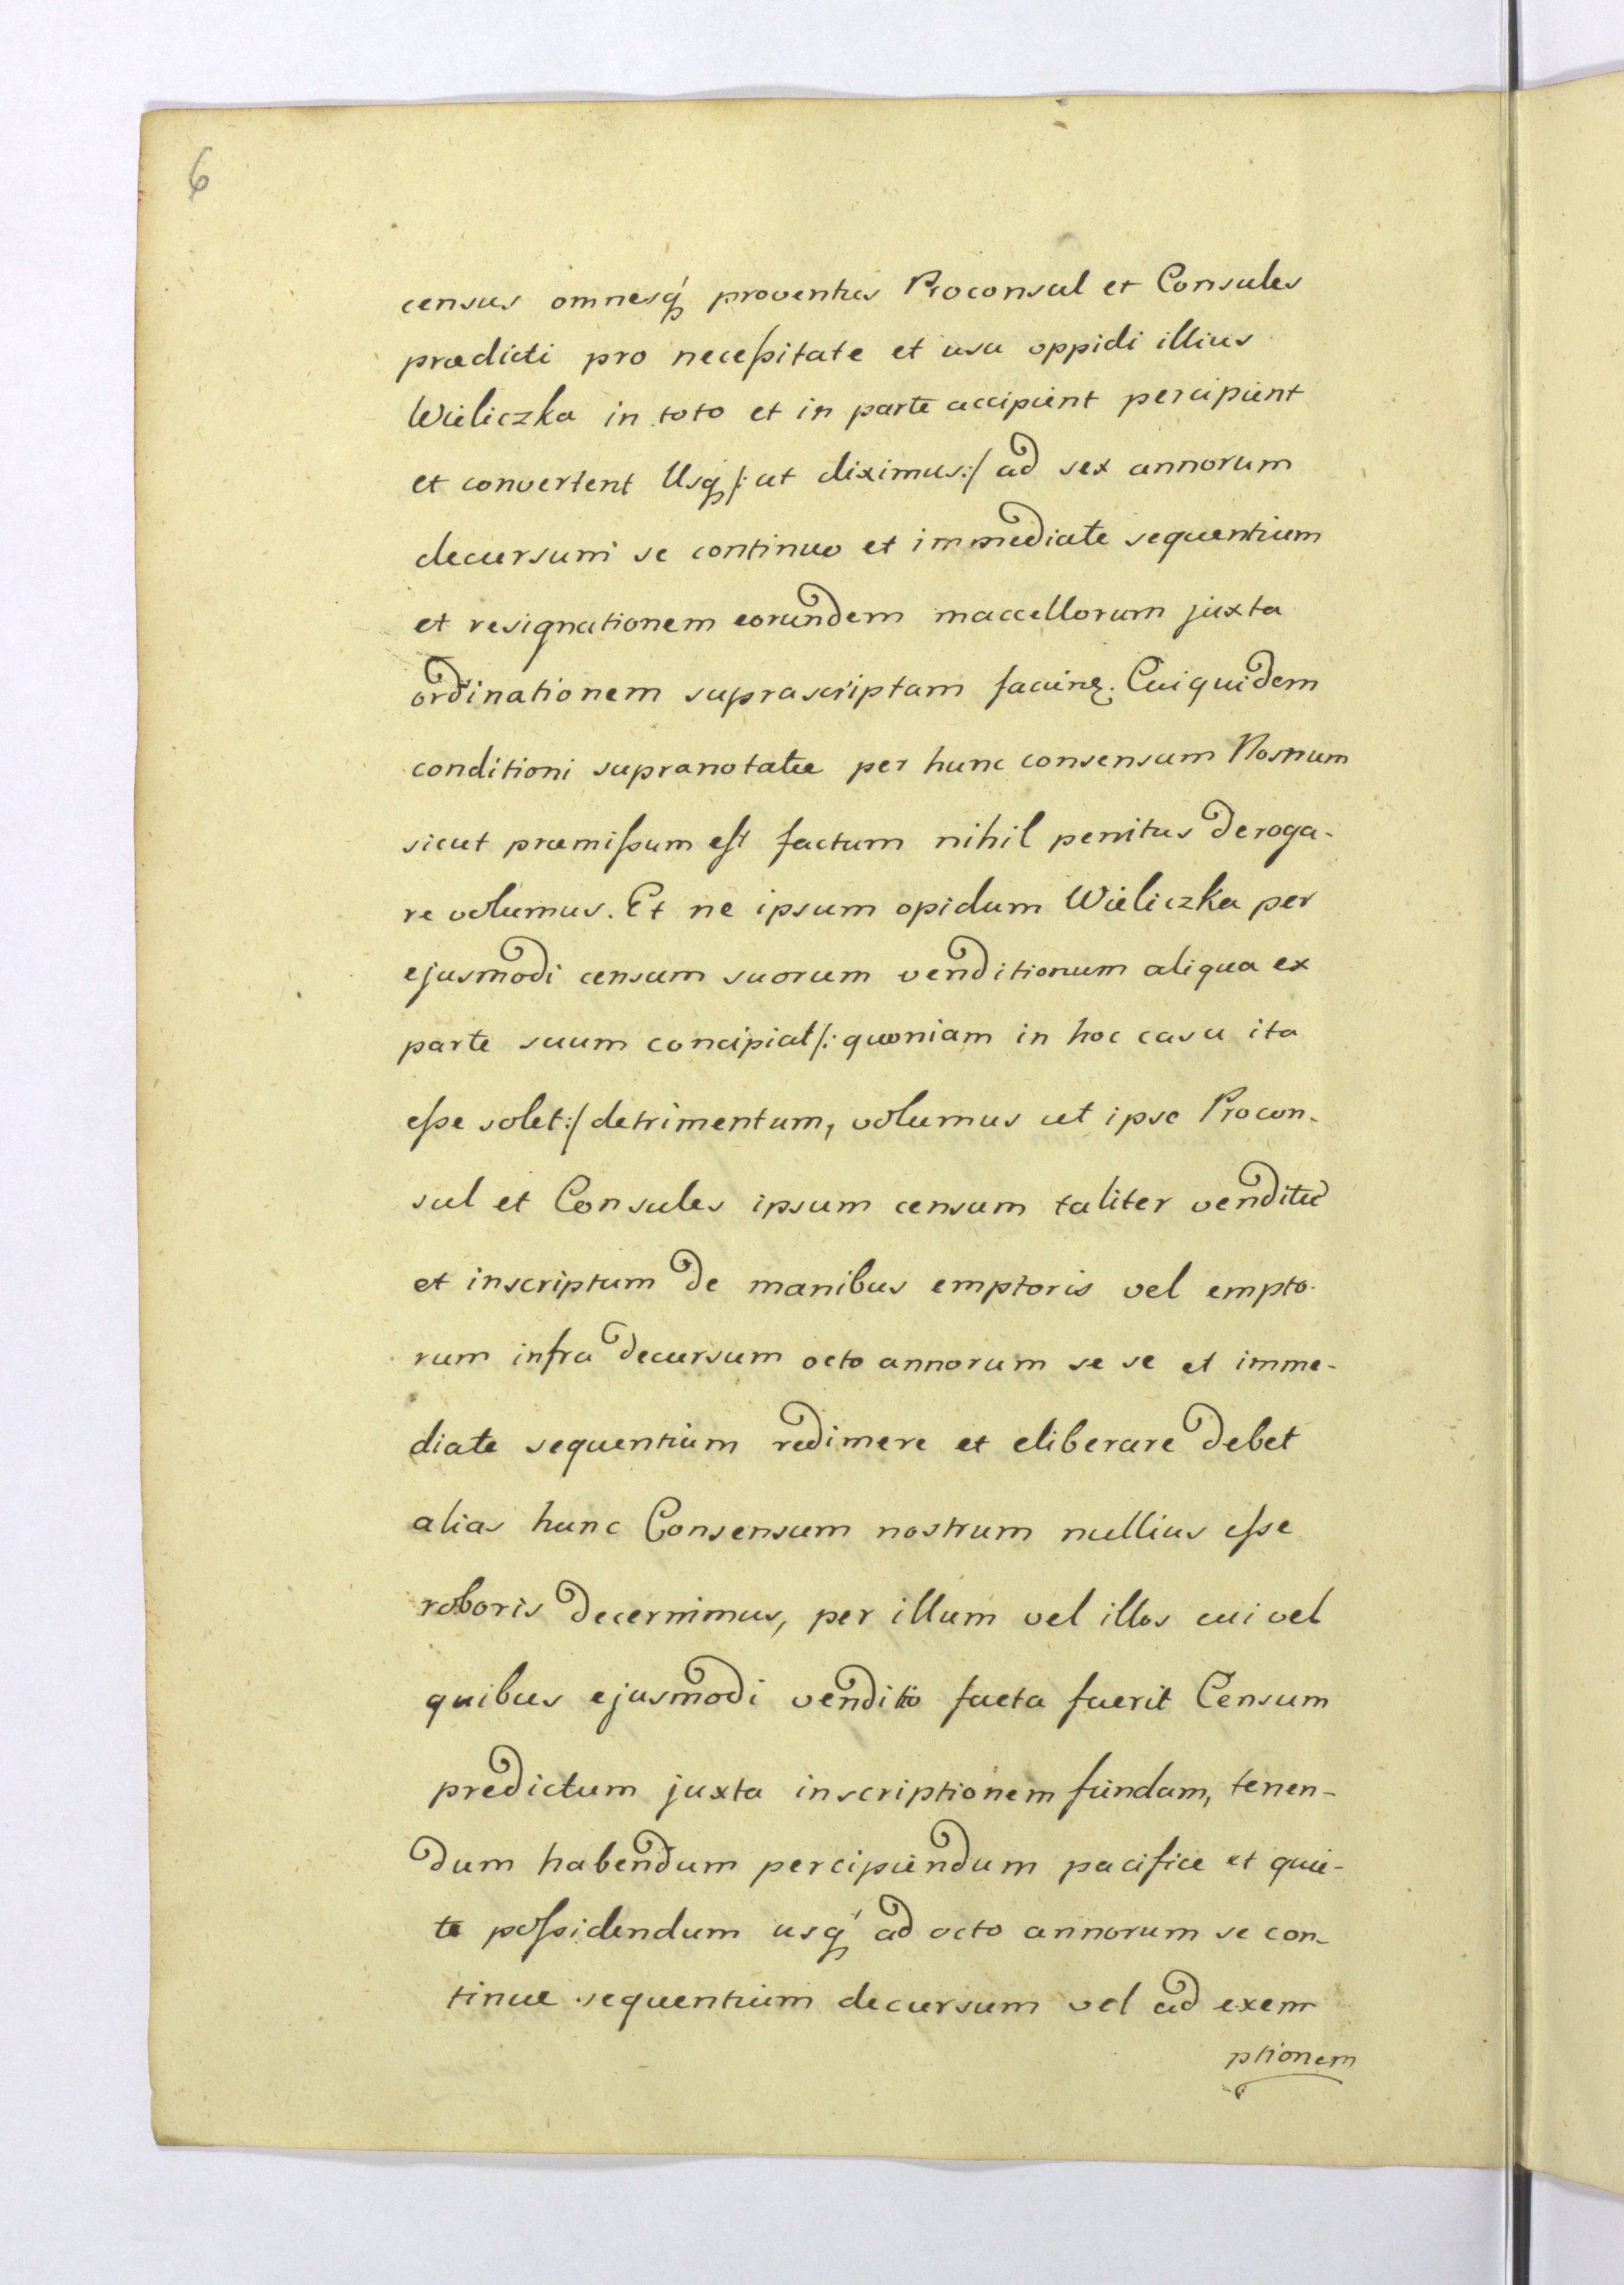 6
census omnesq́ proventus Proconsul et Consules
prædicti pro neceſsitate et usu oppidi illius
Wieliczka in toto et in parte accipient percipient
et convertent Usq́ /: ut diximus :/ ad sex annorum
decursum se continuo et immediate sequentium
et resignationem eorundem maccellorum juxta
ordinationem suprascriptam Cuiquidem
conditioni supranotatæ per hunc consensum Nostrum
sicut præmiſsum eſt factum nihil penitus deroga-
re volumus. Et ne ipsum opidum Wieliczka per
ejusmodi censum suorum venditionum aliqua ex
parte suum concipiat /: quoniam in hoc casu ita
eſse solet :/ detrimentum, volumus ut ipse Procon-
sul et Consules ipsum censum taliter venditū
et inscriptum de manibus emptoris vel empto-
rum infra decursum octo annorum se se et imme-
diate sequentium redimere et eliberare debet
alias hunc Consensum nostrum nullius eſse
roboris decernimus, per illum vel illos cui vel
quibus ejusmodi venditio facta fuerit Censum
predictum juxta inscriptionem fundam, tenen-
dum habendum percipiendum pacifice et quie-
te poſsidendum usq́ ad octo annorum se con-
tinue sequentium decursum vel ad exem
ptionem